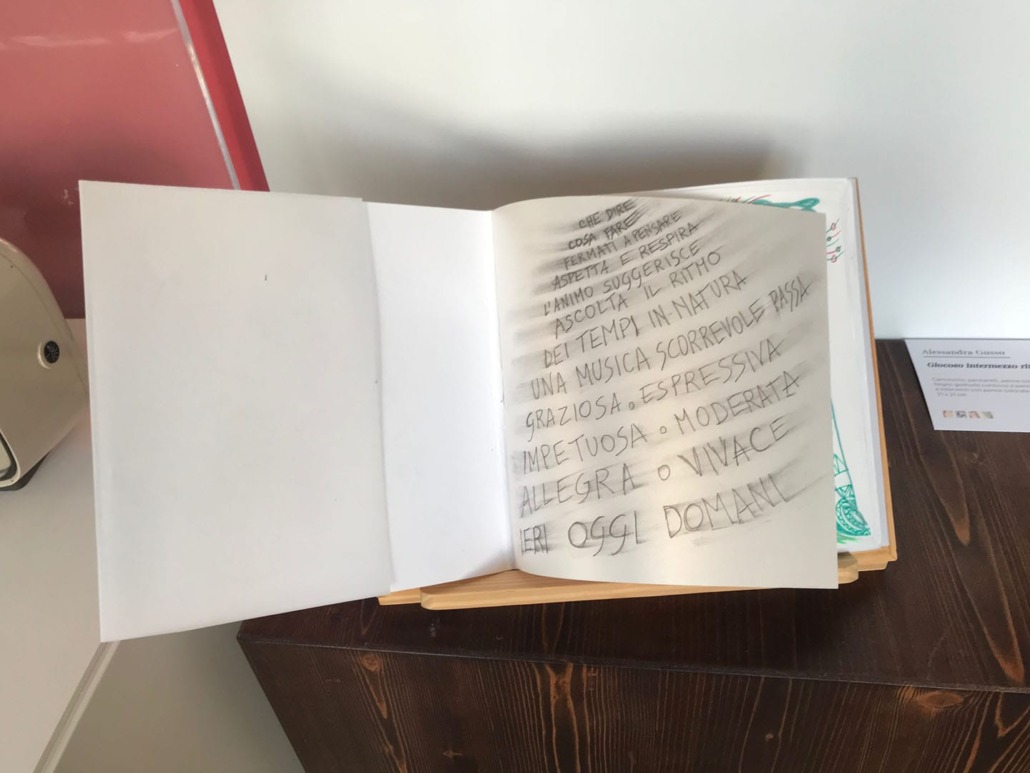 CHE DIRE
COSA FARE
FERMATI A PENSARE
ASPETTA E RESPIRA
L'ANIMO SUGGERISCE
ASCOLTA IL RITMO
DEI TEMPI IN NATURA
UNA MUSICA SCORREVOLE PASSA
GRAZIOSA o ESPRESSIVA
IMPETUOSA o MODERATA
ALLEGRA o VIVACE
IERI OGGI DOMANI
Alessandra
Giocoso Intermezzo